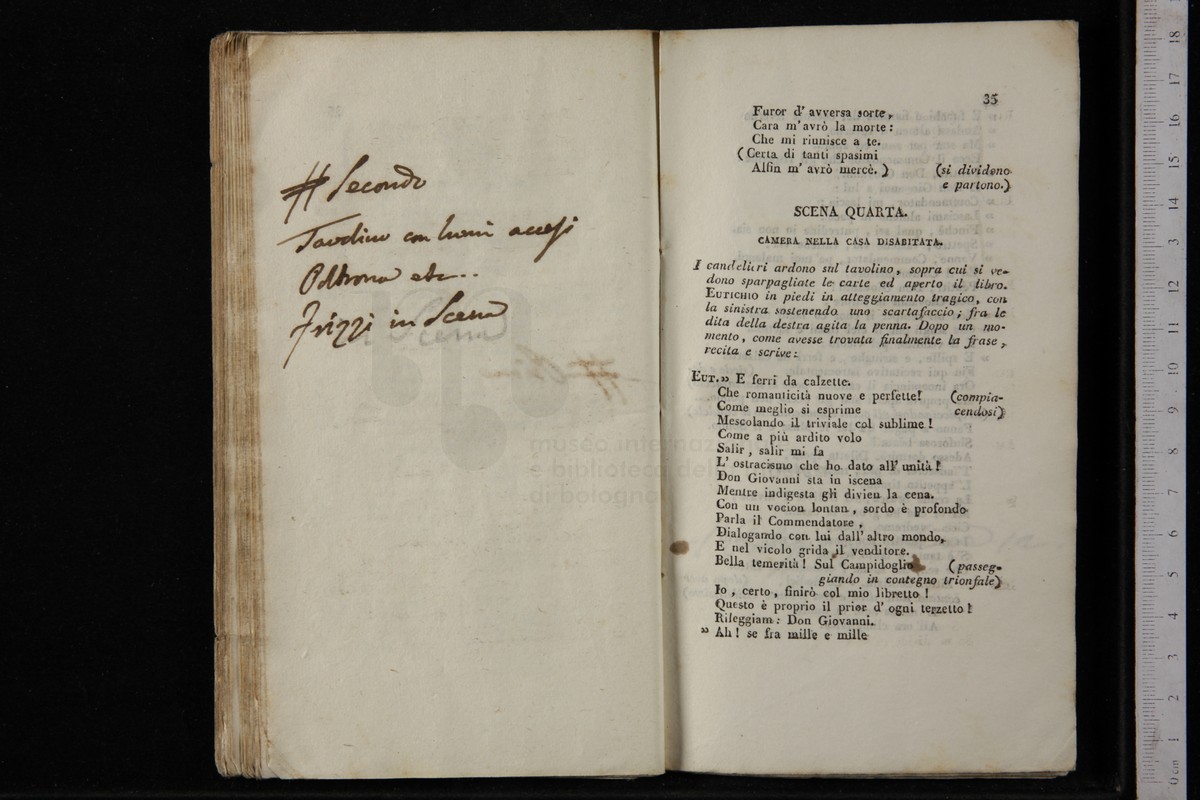 # Secondo
Tavolino con lumi accesi
Poltrona etc..
Frizzi in Scena
35
Furor d' avversa sorte,
Cara m' avrò la morte:
Che mi riunisce a te.
( Certa di tanti spasimi
Alfin m' avrò mercè. ) (si dividono
e partono.)
SCENA QUARTA.
CAMERA NELLA CASA DISABITATA.
I candelieri ardono sul tavolino, sopra cui si ve-
dono sparpagliate le carte ed aperto il libro.
EUTICHIO in piedi in atteggiamento tragico, con
la sinistra sostenendo uno scartafaccio; fra le
dita della destra agita la penna. Dopo un mo-
mento, come avesse trovata finalmente la frase,
recita e scrive:
EUT.» E ferri da calzette.
Che romanticità nuove e perfette! (compia-
Come meglio si esprime cendosi)
Mescolando il triviale col sublime!
Come a più ardito volo
Salir, salir mi fa
L' ostracismo che ho dato all' unità!
Don Giovanni sta in iscena
Mentre indigesta gli divien la cena.
Con un vocion lontan, sordo è profondo
Parla il Commendatore,
Dialogando con lui dall' altro mondo,
E nel vicolo grida il venditore.
Bella temerità! Sul Campidoglio (passeg-
giando in contegno trionfale)
Io, certo, finirò col mio libretto!
Questo è proprio il prior d' ogni terzetto!
Rileggiam: Don Giovanni.
» Ah! se fra mille e mille
museo internaz
e biblioteca del
di bologna